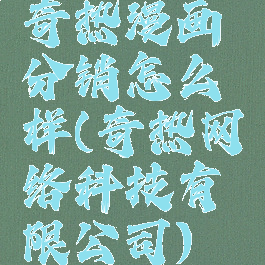 奇热漫画
分销怎么
样(奇热网
络科技有
限公司)